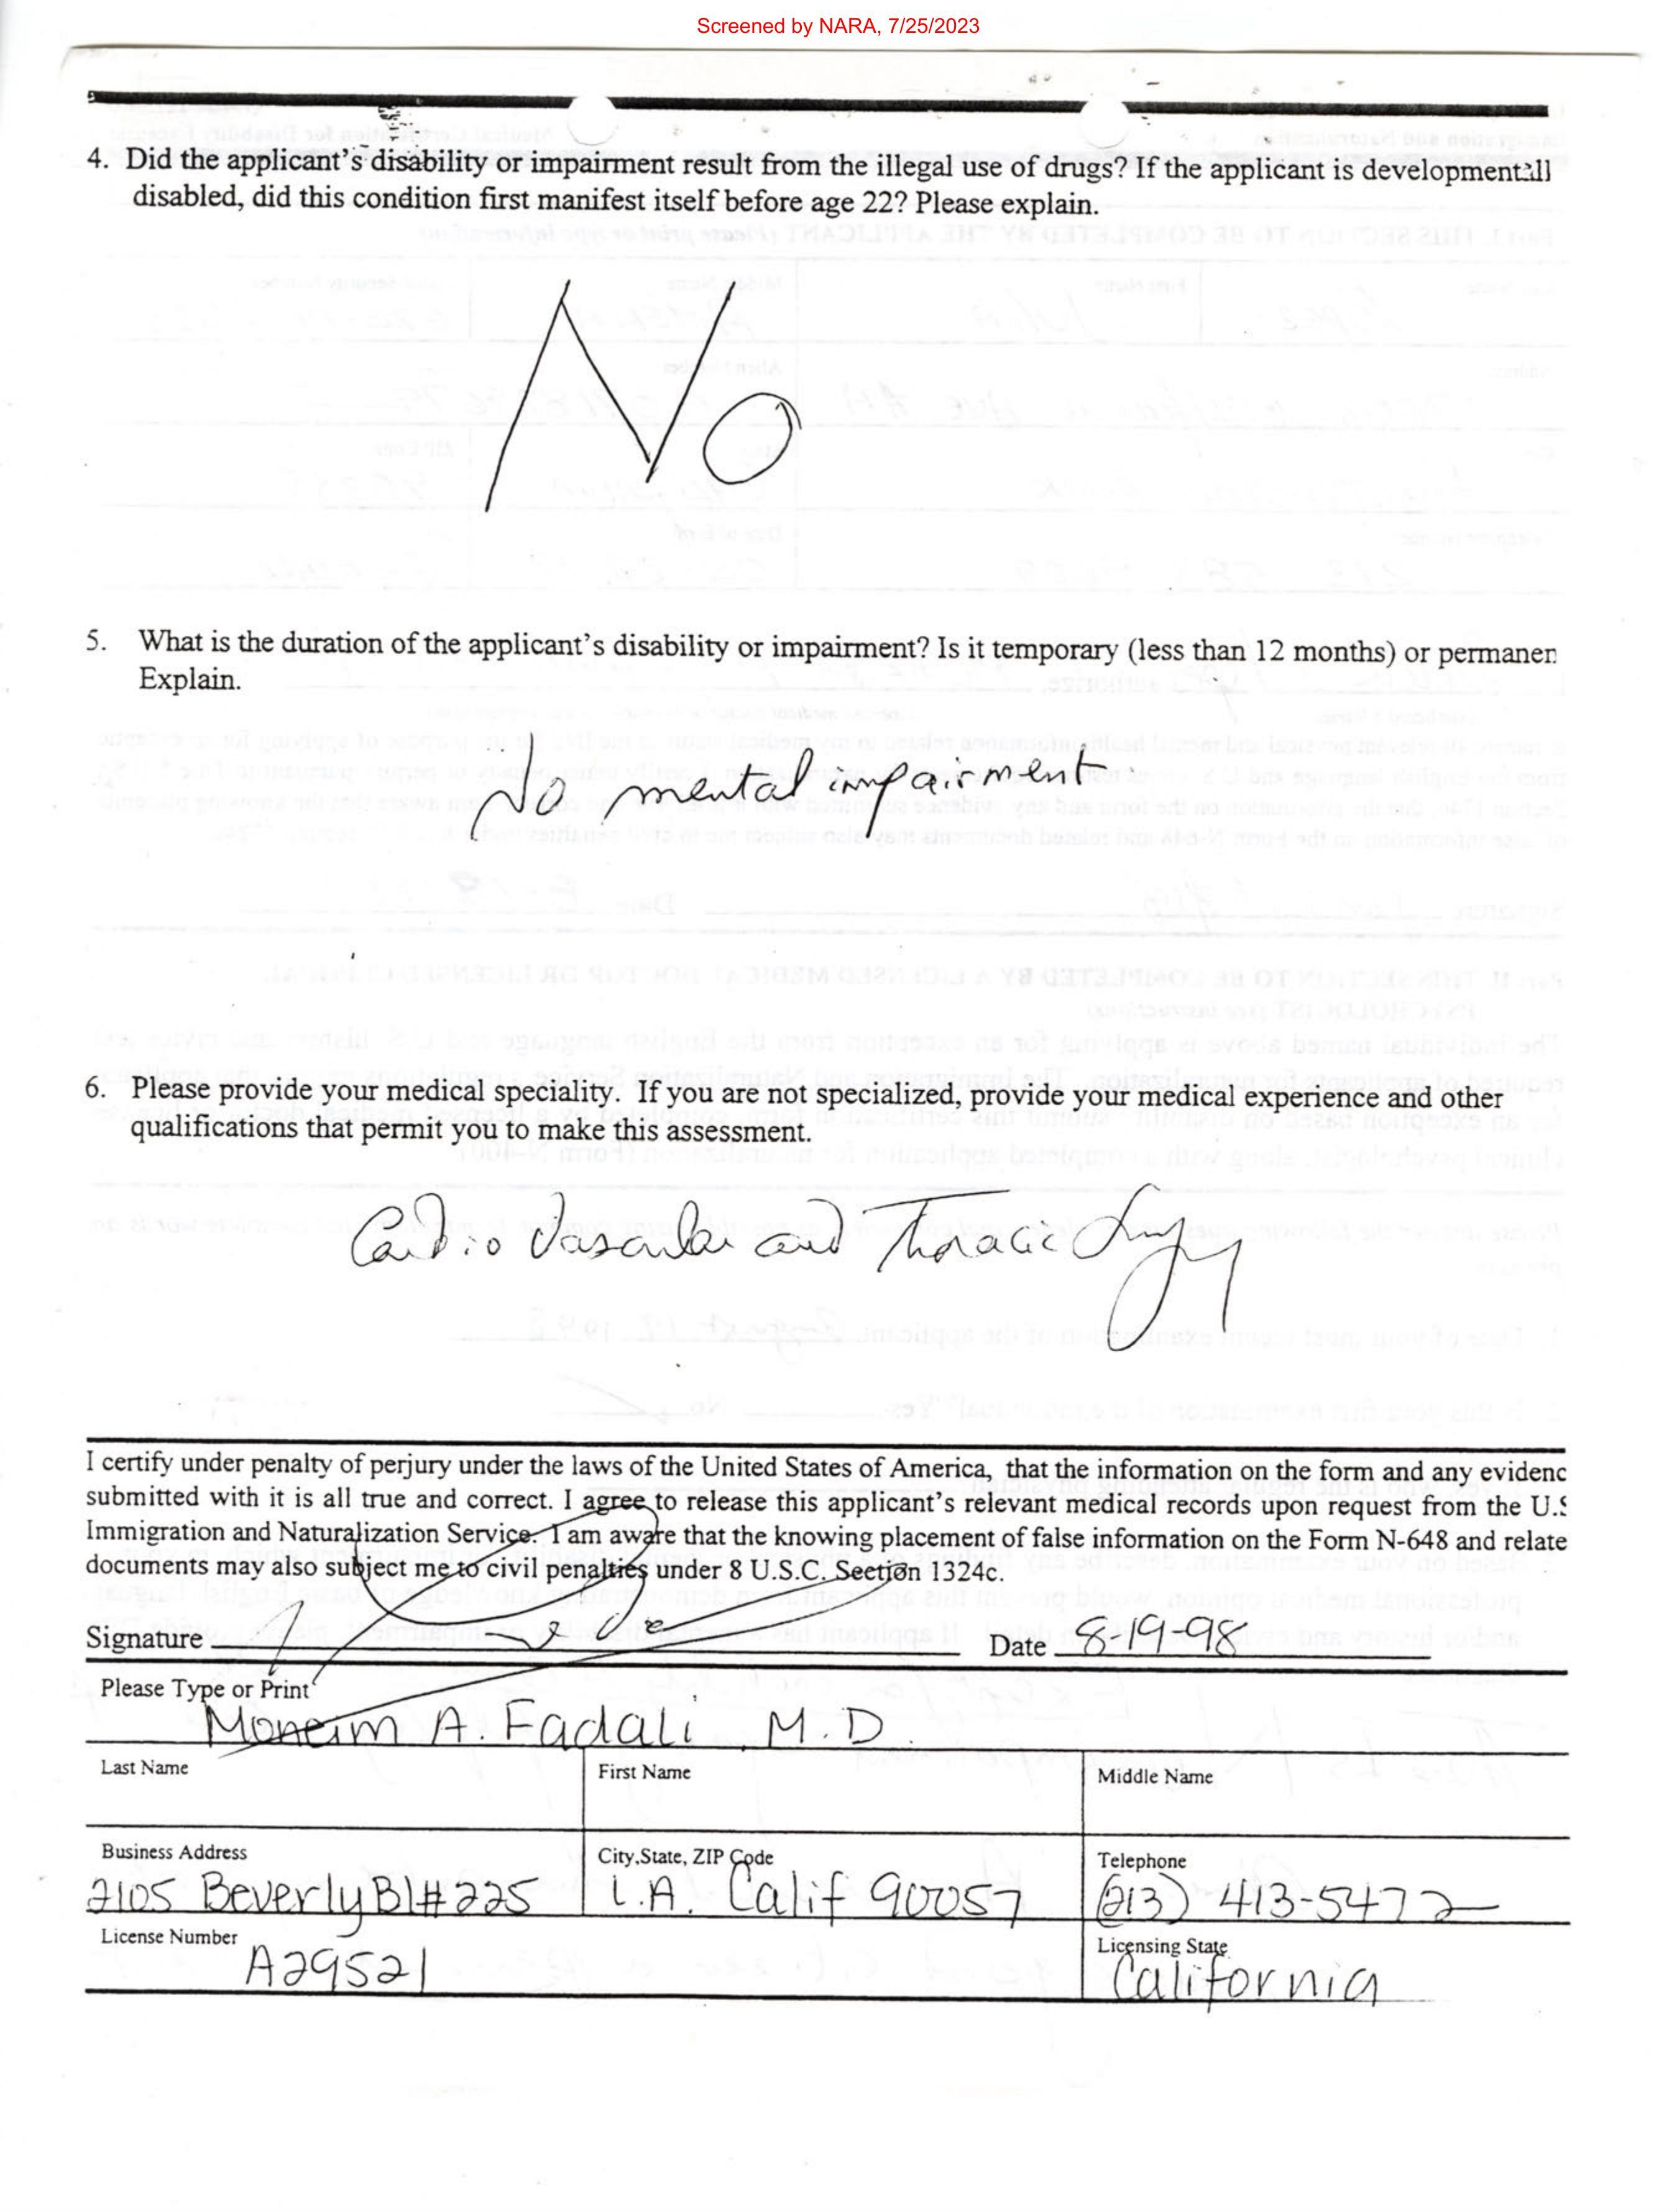 Screened by NARA, 7/25/2023
4. Did the applicant's disability or impairment result from the illegal use of drugs? If the applicant is developmentall
disabled, did this condition first manifest itself before age 22? Please explain.
No
5. What is the duration of the applicant's disability or impairment? Is it temporary (less than 12 months) or permanen
Explain.
No mental impairment
6. Please provide your medical speciality. If you are not specialized, provide your medical experience and other
qualifications that permit you to make this assessment.
Cardio Vascular and Thoracic Surgy
I certify under penalty of perjury under the laws of the United States of America, that the information on the form and any evidenc
submitted with it is all true and correct. I agree to release this applicant's relevant medical records upon request from the U.S
Immigration and Naturalization Service. I am aware that the knowing placement of false information on the Form N-648 and relate
documents may also subject me to civil penalties under 8 U.S.C. Section 1324c.
Signature Date 8-19-98
Please Type or Print
Moneim A. Fadali M.D.
Last Name First Name Middle Name
Business Address City,State, ZIP Code Telephone
2105 Beverly Bl #225 L.A. Calif 90057 (213) 413-5472
License Number Licensing State
A29521 California